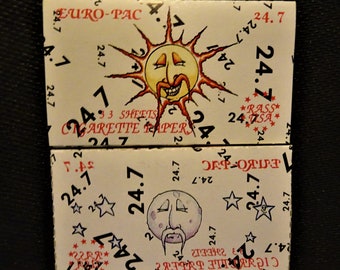 EURO-PAC 24.7
24.7
24.7
24.7
24.7
24.7
24.7
33 SHEETS
CIGARETTE PAPERS
RASS
USA
24.7
24.7
24.7
EURO-PAC
24.7
24.7
24.7
24.7
24.7
24.7
33 SHEETS
CIGARETTE PAPERS